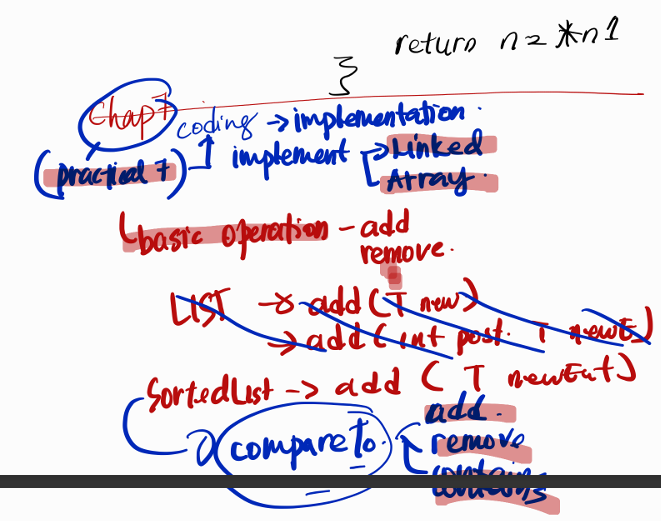 return n = *n1
}
Chap 7
coding → implementation.
(practical 7) implement → Linked
Array.
basic operation - add
remove.
LIST → add (T new)
→ add (int post. T newE)
SortedList → add (T newEnt)
compare to.
add.
remove
contains